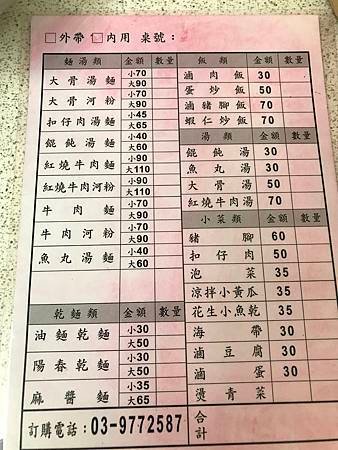 □外帶 □內用 桌號：
麵湯類 金額 數量
大骨湯麵 小70 大90
大骨河粉 小70 大90
扣仔肉湯麵 小45 大65
餛飩湯麵 小40 大60
紅燒牛肉麵 小90 大110
紅燒牛肉河粉 小90 大110
牛肉麵 小70 大90
牛肉河粉 小70 大90
魚丸湯麵 小40 大60
乾麵類 金額 數量
油麵乾麵 小30 大50
陽春乾麵 小30 大50
麻醬麵 小35 大65
訂購電話：03-9772587
飯類 金額 數量
滷肉飯 30
蛋炒飯 50
滷豬腳飯 70
蝦仁炒飯 70
湯類 金額 數量
餛飩湯 30
魚丸湯 30
大骨湯 50
紅燒牛肉湯 70
小菜類 金額 數量
豬腳 60
扣仔肉 50
泡菜 35
涼拌小黃瓜 35
花生小魚乾 35
海帶 30
滷豆腐 30
滷蛋 30
燙青菜
合計